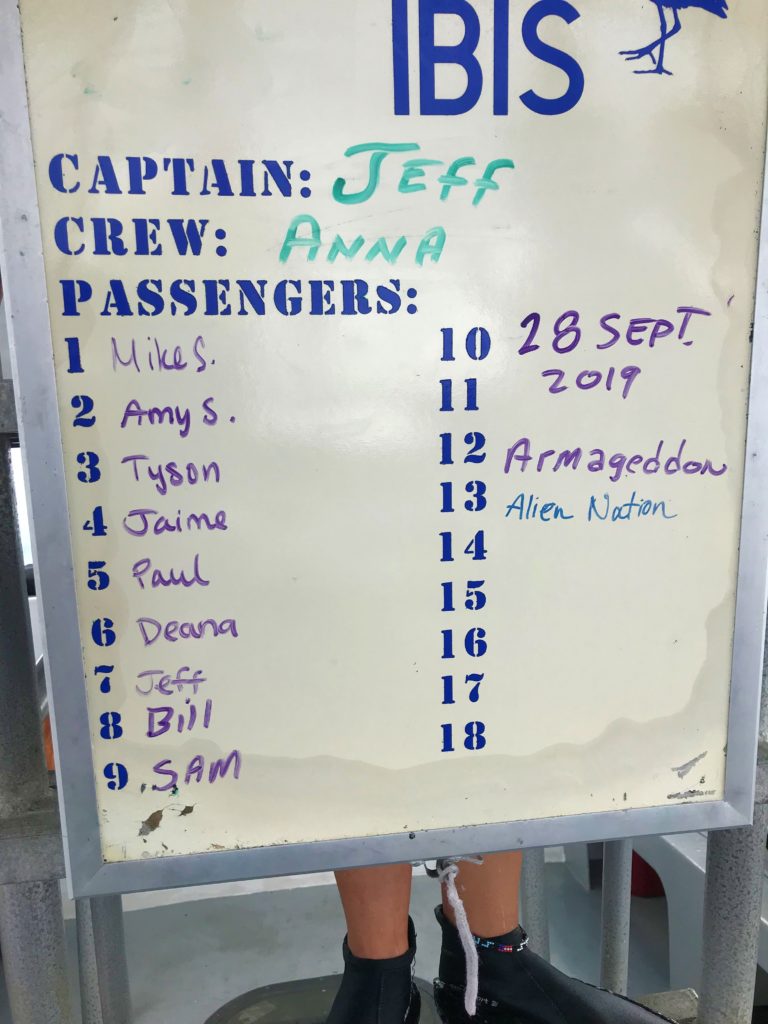 IBIS
CAPTAIN: JEFF
CREW: ANNA
PASSENGERS:
1 Mike S.
2 Amy S.
3 Tyson
4 Jaime
5 Paul
6 Deana
7 Jeff
8 Bill
9 SAM
10 28 SEPT.
2019
11
12 Armageddon
13 Alien Nation
14
15
16
17
18